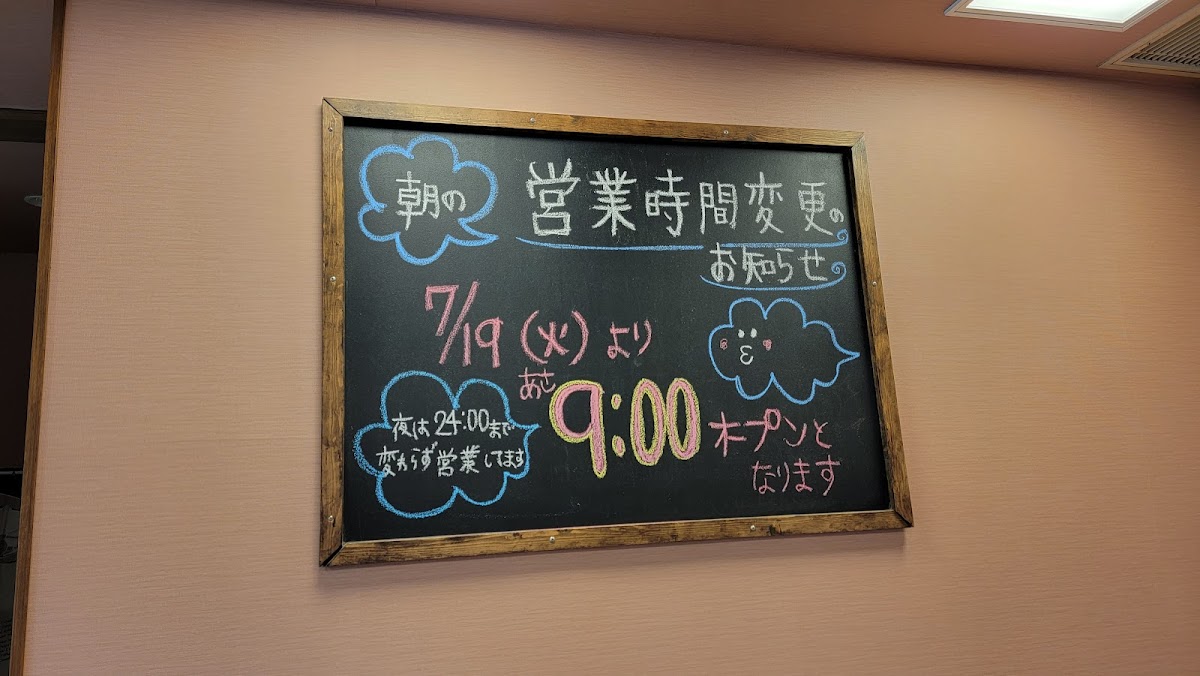 朝の
営業時間変更の
お知らせ
7/19(火)より
あさ
9:00 オープンと
なります
夜は24:00まで
変わらず営業してます